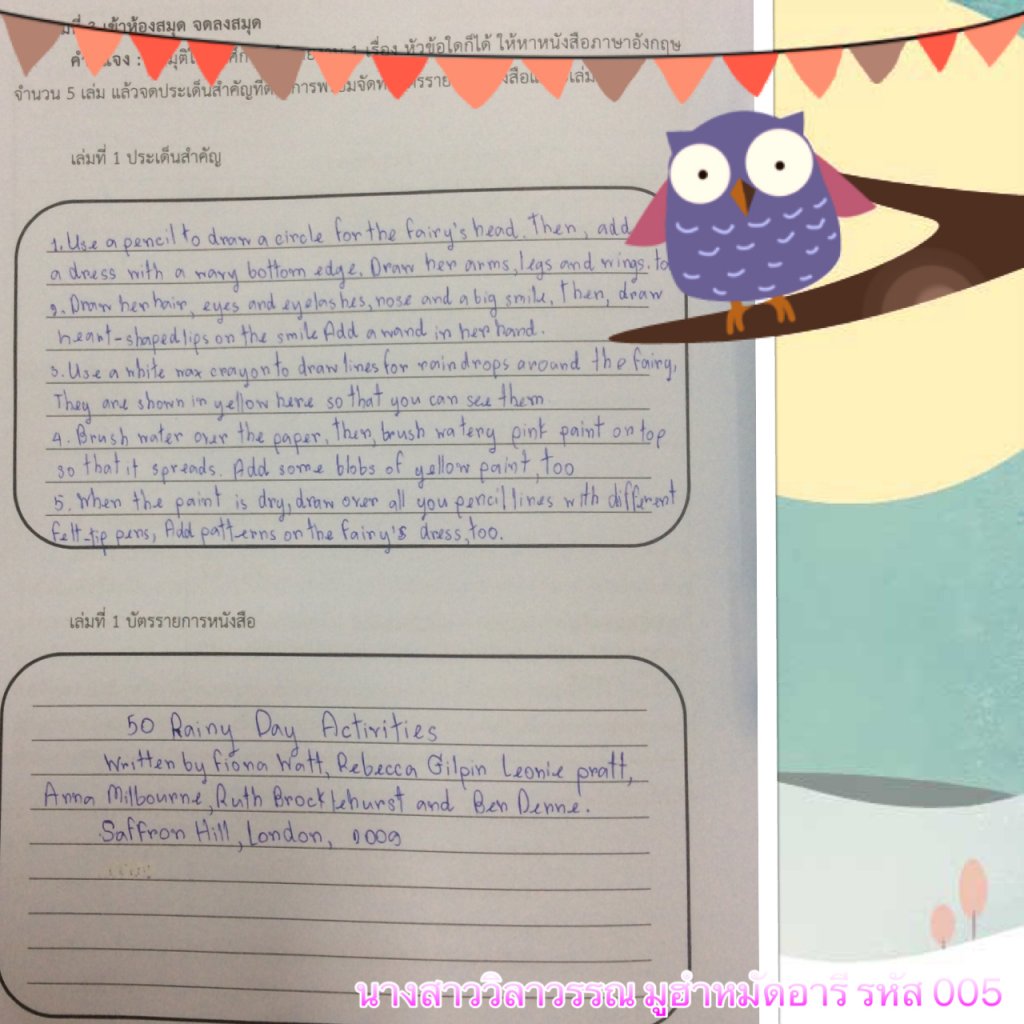 เข้าห้องสมุด จดลงสมุด
เรื่อง หัวข้อใดก็ได้ ให้หาหนังสือภาษาอังกฤษ
จำนวน 5 เล่ม แล้วจดประเด็นสำคัญ
เล่มที่ 1 ประเด็นสำคัญ
1. Use a pencil to draw a circle for the fairy's head. Then, add
a dress with a wavy bottom edge. Draw her arms, legs and wings. to
2. Draw her hair, eyes and eyelashes, nose and a big smile. Then, draw
heart-shaped lips on the smile Add a wand in her hand.
3. Use a white wax crayon to draw lines for raindrops around the fairy,
They are shown in yellow here so that you can see them
4. Brush water over the paper, then, brush watery pink paint on top
so that it spreads. Add some blobs of yellow paint, too
5. When the paint is dry, draw over all you pencil lines with different
felt-tip pens, Add patterns on the fairy's dress, too.
เล่มที่ 1 บัตรรายการหนังสือ
50 Rainy Day Activities
Written by Fiona Watt, Rebecca Gilpin Leonie pratt,
Anna Milbourne, Ruth Brocklehurst and Ben Denne.
Saffron Hill, London,
นางสาววิลาวรรณ มูฮำหมัดอารี รหัส 005